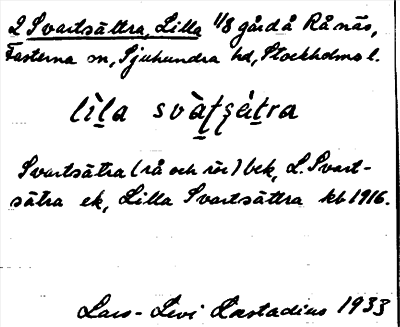 2 Svartsättra, Lilla 1/8 gård å Rånäs,
Fasterna sn, Sjuhundra hd, Stockholms l.
lìl̠a svàt̠sät̠ra
Svartsätra (rå och rör) bek, L. Svart-
sätra ek, Lilla Svartsättra kb 1916.
Lars-Levi Læstadius 1933